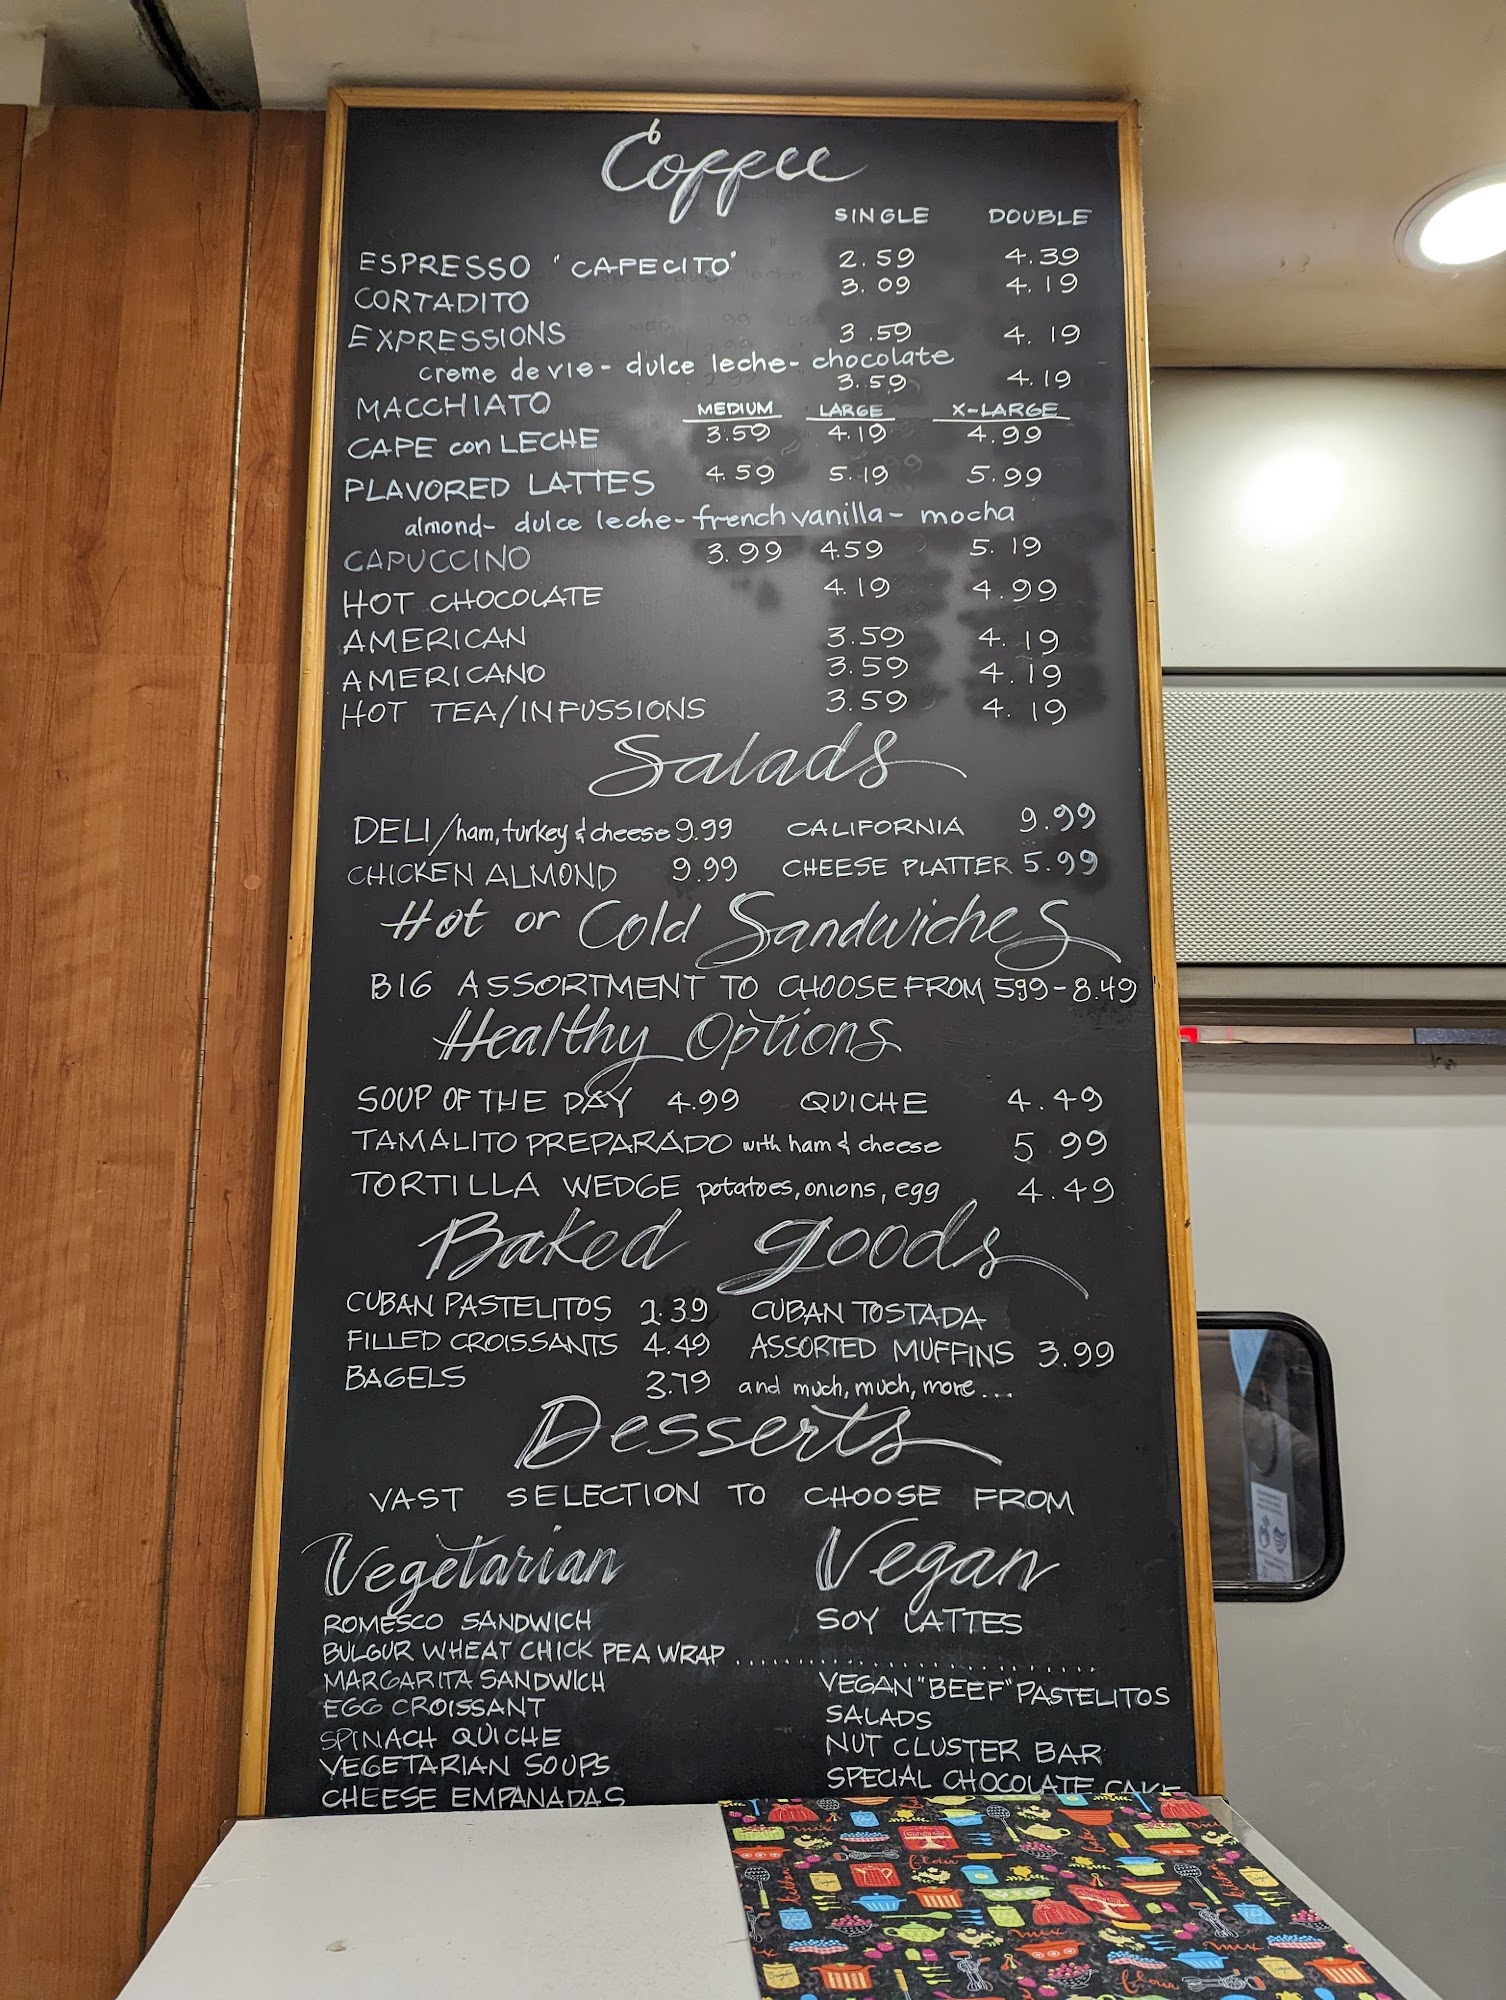 Coffee
SINGLE DOUBLE
ESPRESSO "CAFECITO" 2.59 4.39
CORTADITO 3.09 4.19
EXPRESSIONS 3.59 4.19
creme de vie - dulce leche - chocolate
MACCHIATO 3.59 4.19
MEDIUM LARGE X-LARGE
CAFE con LECHE 3.59 4.19 4.99
FLAVORED LATTES 4.59 5.19 5.99
almond - dulce leche - french vanilla - mocha
CAPUCCINO 3.99 4.59 5.19
HOT CHOCOLATE 4.19 4.99
AMERICAN 3.59 4.19
AMERICANO 3.59 4.19
HOT TEA/INFUSSIONS 3.59 4.19
Salads
DELI/ham, turkey & cheese 9.99 CALIFORNIA 9.99
CHICKEN ALMOND 9.99 CHEESE PLATTER 5.99
Hot or Cold Sandwiches
BIG ASSORTMENT TO CHOOSE FROM 5.99 - 8.49
Healthy Options
SOUP OF THE DAY 4.99 QUICHE 4.49
TAMALITO PREPARADO with ham & cheese 5.99
TORTILLA WEDGE potatoes, onions, egg 4.49
Baked goods
CUBAN PASTELITOS 2.39 CUBAN TOSTADA
FILLED CROISSANTS 4.49 ASSORTED MUFFINS 3.99
BAGELS 3.79 and much, much, more...
Desserts
VAST SELECTION TO CHOOSE FROM
Vegetarian Vegan
ROMESCO SANDWICH SOY LATTES
BULGUR WHEAT CHICK PEA WRAP ........................
MARGARITA SANDWICH VEGAN "BEEF" PASTELITOS
EGG CROISSANT SALADS
SPINACH QUICHE NUT CLUSTER BAR
VEGETARIAN SOUPS SPECIAL CHOCOLATE CAKE
CHEESE EMPANADAS